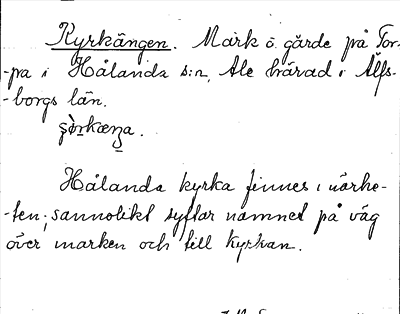 Kyrkängen. Mark ö. gärde på Tor-
-pa i Hålanda s:n, Ale härad i Älfs-
-borgs län.
Hålanda kyrka finnes i närhe-
-ten; sannolikt syftar namnet på väg
över marken och till kyrkan.